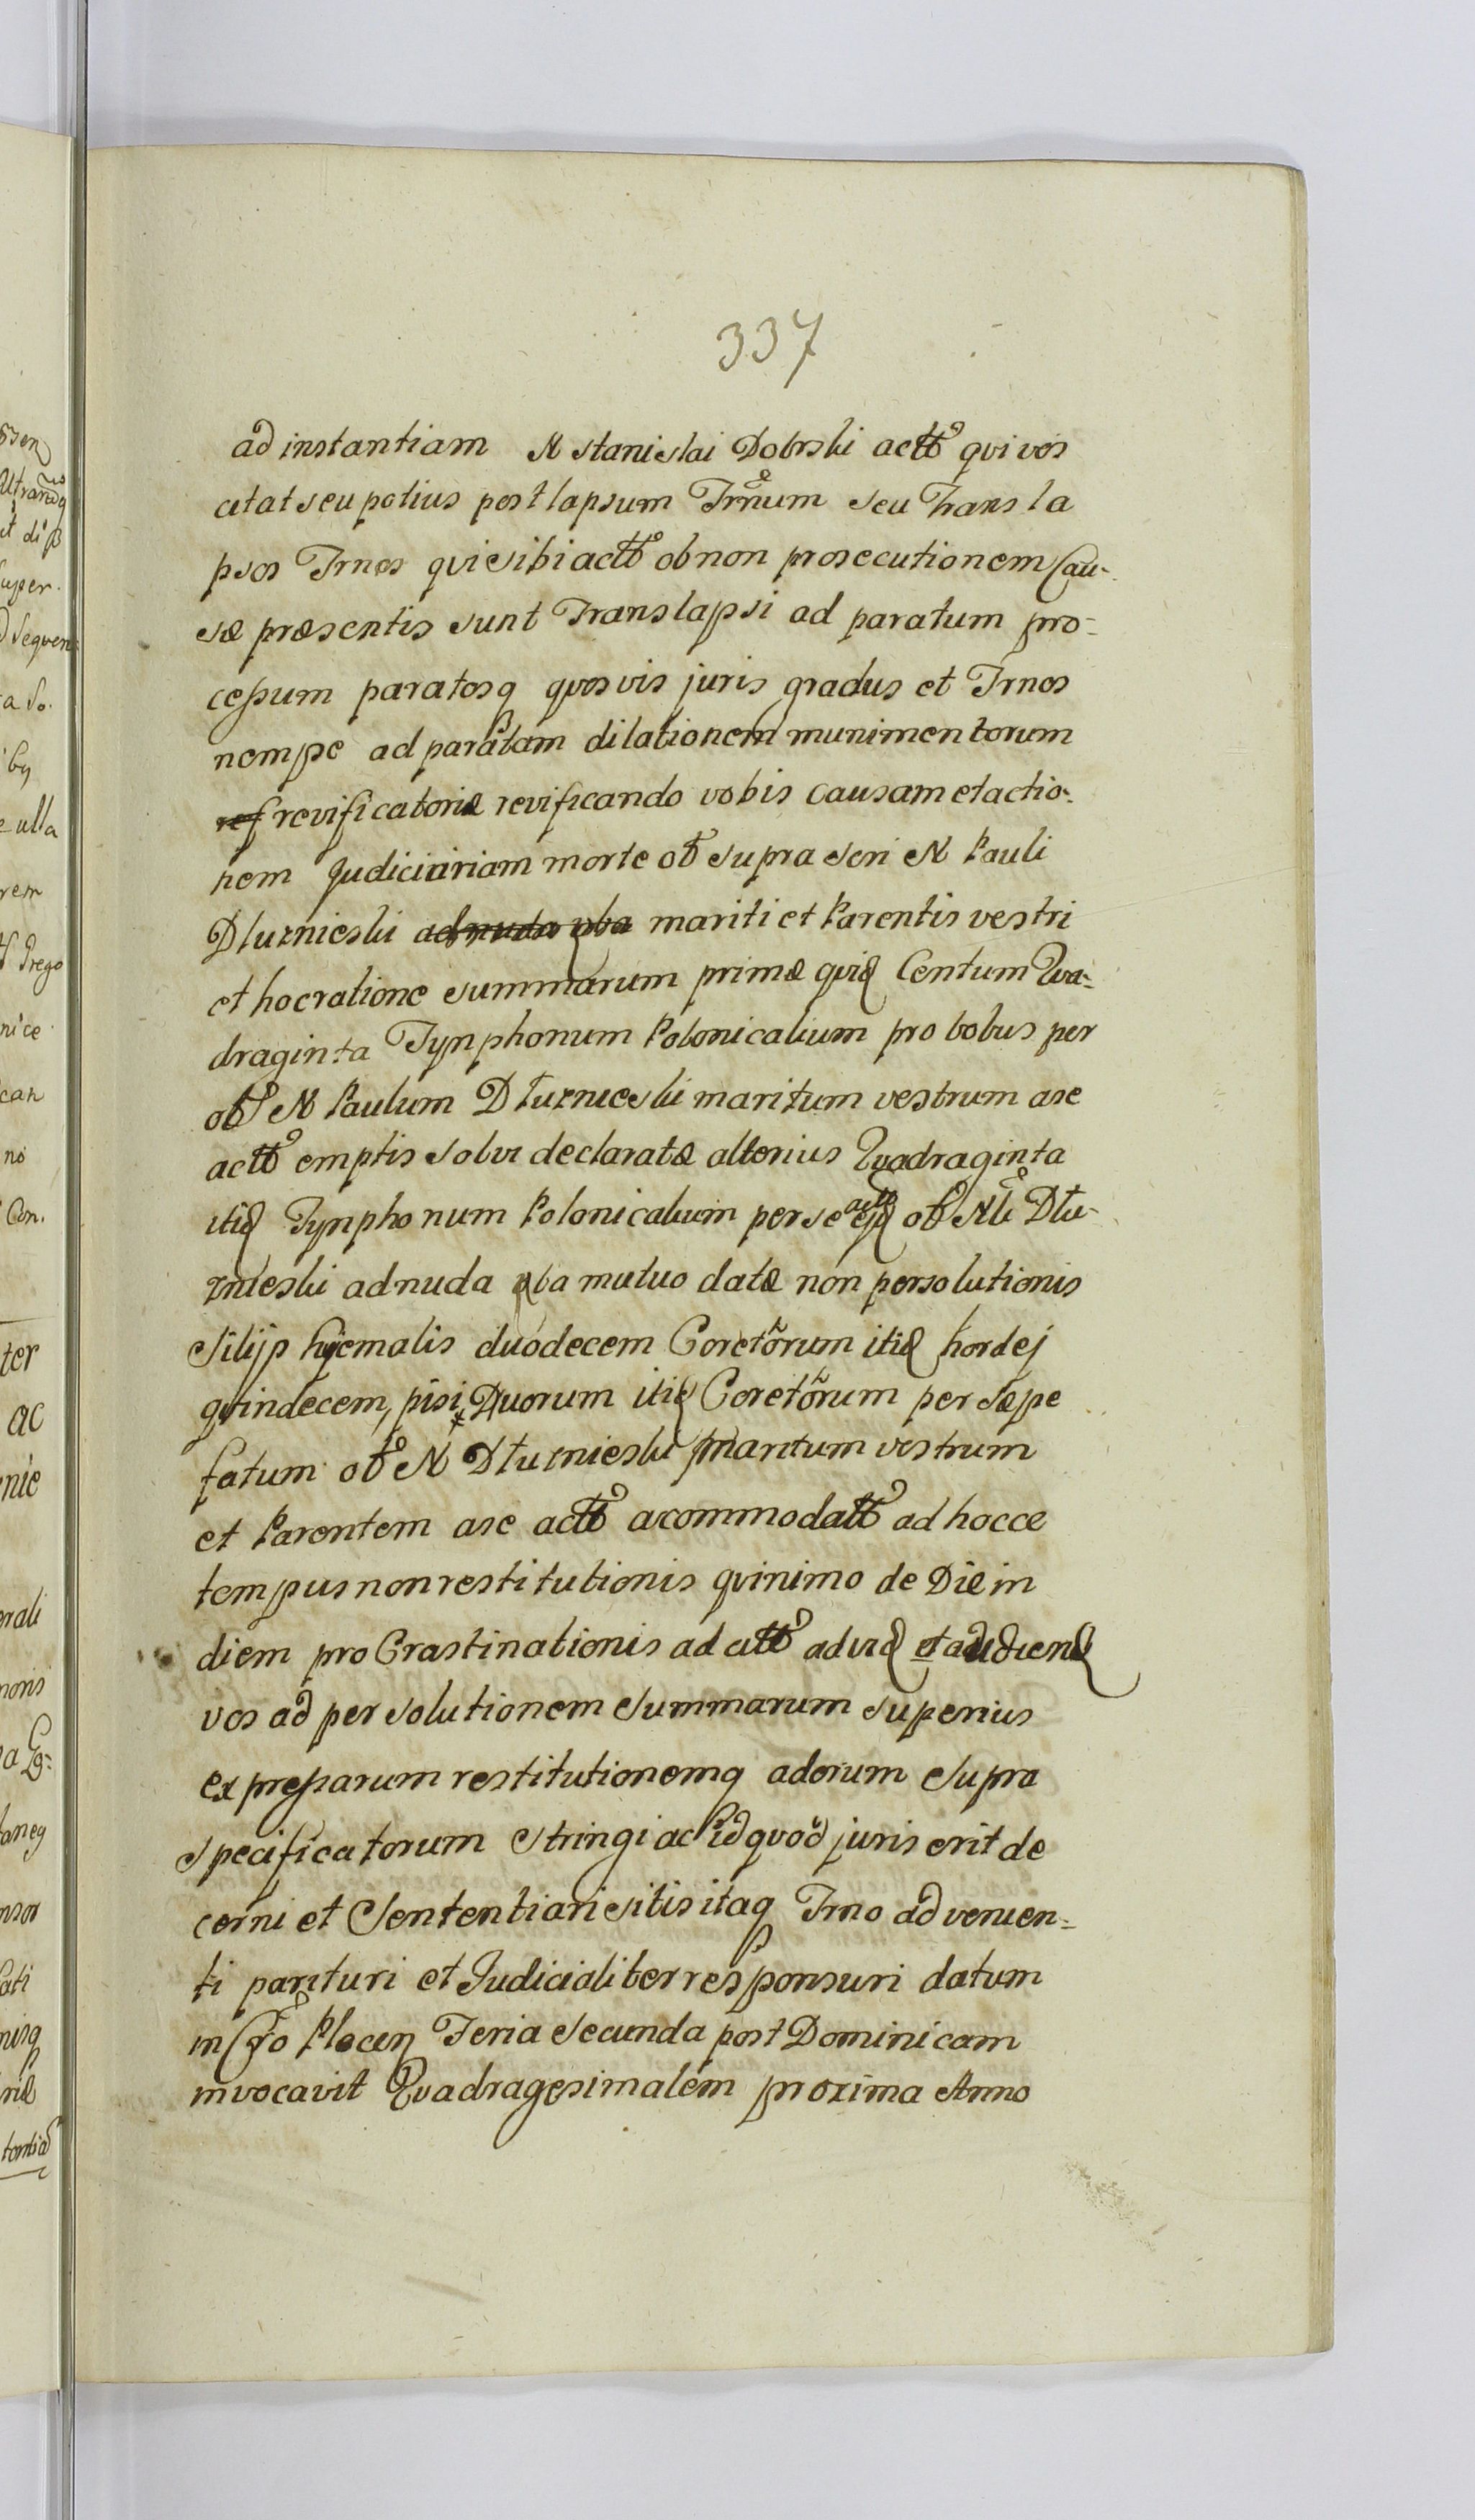 337
ad instantiam N Stanislai Dobrski actt qui vos
citat seu potius post lapsum Trnum seu Transla
psos Trnos qui sibi actt ob non prosecutionem Cau-
sæ præsentis sunt Translapsi ad paratum pro-
cessum paratosq quosvis juris gradus et Trnos
nempe ad paratam dilationem munimentorum
ref revificatoriæ revificando vobis causam et actio-
nem Judiciariam morte olt supra scri N Pauli
Dłuznieski ad nuda vba mariti et Parentis vestri
et hoc ratione summarum primæ quid Centum Qua-
draginta Tynphonum Polonicalium pro bobus per
olt N Paulum Dłuznieski maritum vestrum a se
actt emptis solvi declaratæ alterius Quadraginta
itid Tynphonum Polonicalium per se actt ejd olt Nli Dłu-
znieski ad nuda vba mutuo datæ non persolutionis
Silijs hyemalis duodecem Coretorum itid hordej
quindecem, pisi Duorum itid Coretorum per sæpe
fatum olt N Dłuznieski maritum vestrum
et Parentem a se actt acommodatt ad hocce
tempus non restitutionis quinimo de Die in
diem pro Crastinationis ad citt ad vid et audiend
vos ad persolutionem summarum superius
expressarum restitutionemq adorum supra
specificatorum stringi ac id quod juris erit de
cerni et Sententiari sitis itaq Trno ad venien-
ti parituri et Judicialiter responsuri datum
in Cro Plocen Feria Secunda post Dominicam
invocavit Quadragesimalem proxima Anno